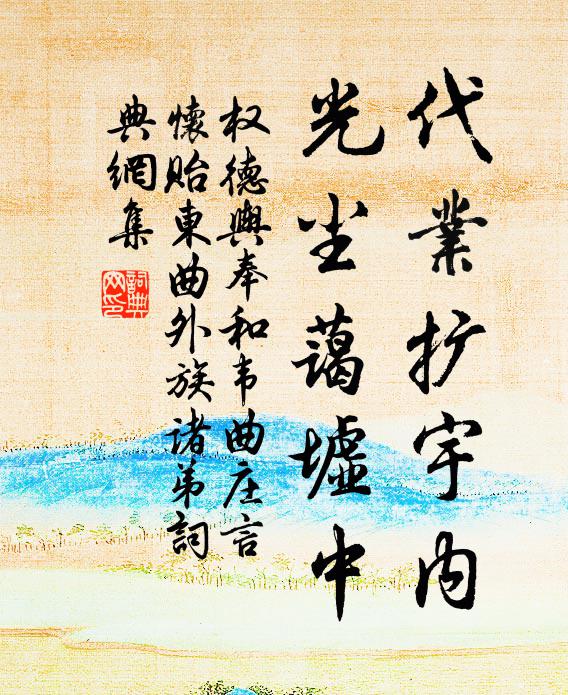 代業扩宇内
光尘蔼墟中
权德輿奉和韦曲庄言
懷貽東曲外族诸弟詞
典網集
詞典
网印